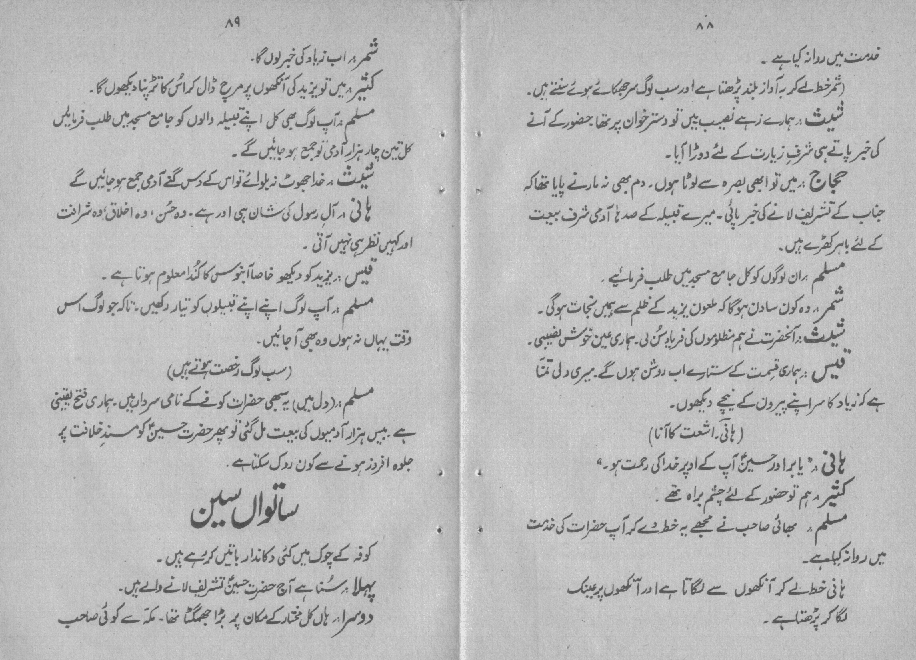 ۸۸
خدمت میں روانہ کیا ہے ۔
(شمر خط لے کر بہ آواز بلند پڑھتا ہے اور سب لوگ سر جھکائے ہوئے سنتے ہیں۔
شیث :۔ ہمارے زہے نصیب ہیں تو دستر خوان پر تھا حضور کے آنے
کی خبر پاتے ہی شرف زیارت کے لئے دوڑا آیا۔
حجاج :۔ میں تو ابھی بصرہ سے لوٹا ہوں۔ دم بھی نہ مارنے پایا تھا کہ
جناب کے تشریف لانے کی خبر پائی۔ میرے قبیلہ کے صدہا آدمی شرف بیعت
کے لئے باہر کھڑے ہیں۔
مسلم :۔ ان لوگوں کو کل جامع مسجد میں طلب فرمائیے ۔
شمر :۔ وہ کون سا دن ہوگا کہ ملعون یزید کے ظلم سے ہمیں نجات ہوگی ۔
شیث :۔ آنحضرت نے ہم مظلوموں کی فریاد سن لی۔ ہماری عین خوش نصیبی۔
قیس :۔ ہماری قسمت کے ستارے اب روشن ہوں گے۔ میری دلی تمنا
ہے کہ زیاد کا سر اپنے پیروں کے نیچے دیکھوں۔
(ہانی۔ اشعت کا آنا)
ہانی :۔ "یا برادر حسینؑ آپ کے اوپر خدا کی رحمت ہو۔"
کثیر :۔ ہم تو حضور کے لئے چشم براہ تھے
مسلم :۔ بھائی صاحب نے مجھے یہ خط دے کر آپ حضرات کی خدمت
میں روانہ کیا ہے۔
ہانی خط لے کر آنکھوں سے لگاتا ہے اور آنکھوں پر عینک
لگا کر پڑھتا ہے ۔
۸۹
شمر :۔ اب زیاد کی خبر لوں گا۔
کثیر :۔ میں تو یزید کی آنکھوں پر مرچ ڈال کر اس کا تڑپنا دیکھوں گا۔
مسلم :۔ آپ لوگ بھی کل اپنے قبیلہ والوں کو جامع مسجد میں طلب فرمائیں
کل تین چار ہزار آدمی تو جمع ہو جائیں گے ۔
شیث :۔ خدا جھوٹ نہ بلوائے تو اس کے دس گنے آدمی جمع ہو جائیں گے
ہانی :۔ آل رسول کی شان ہی اور ہے۔ وہ حسن، وہ اخلاق، وہ شرافت
اور کہیں نظر ہی نہیں آتی ۔
قیس :۔ یزید کو دیکھو خاصا آبنوس کا کندا معلوم ہوتا ہے ۔
مسلم :۔ آپ لوگ اپنے اپنے قبیلوں کو تیار رکھیں۔ تاکہ جو لوگ اس
وقت یہاں نہ ہوں وہ بھی آجائیں۔
(سب لوگ رخصت ہوتے ہیں)
مسلم :۔ (دل میں) یہ سبھی حضرات کوفے کے نامی سردار ہیں۔ ہماری فتح یقینی
ہے بیس ہزار آدمیوں کی بیعت مل گئی تو پھر حضرت حسینؑ کو مسند خلافت پر
جلوہ افروز ہونے سے کون روک سکتا ہے۔
ساتواں سین
کوفہ کے چوک میں کئی دکاندار باتیں کر رہے ہیں ۔
پہلا :۔ سنا ہے آج حضرت حسینؑ تشریف لانے والے ہیں۔
دوسرا :۔ ہاں کل مختار کے مکان پر بڑا جمگھٹا تھا۔ مکہ سے کوئی صاحب